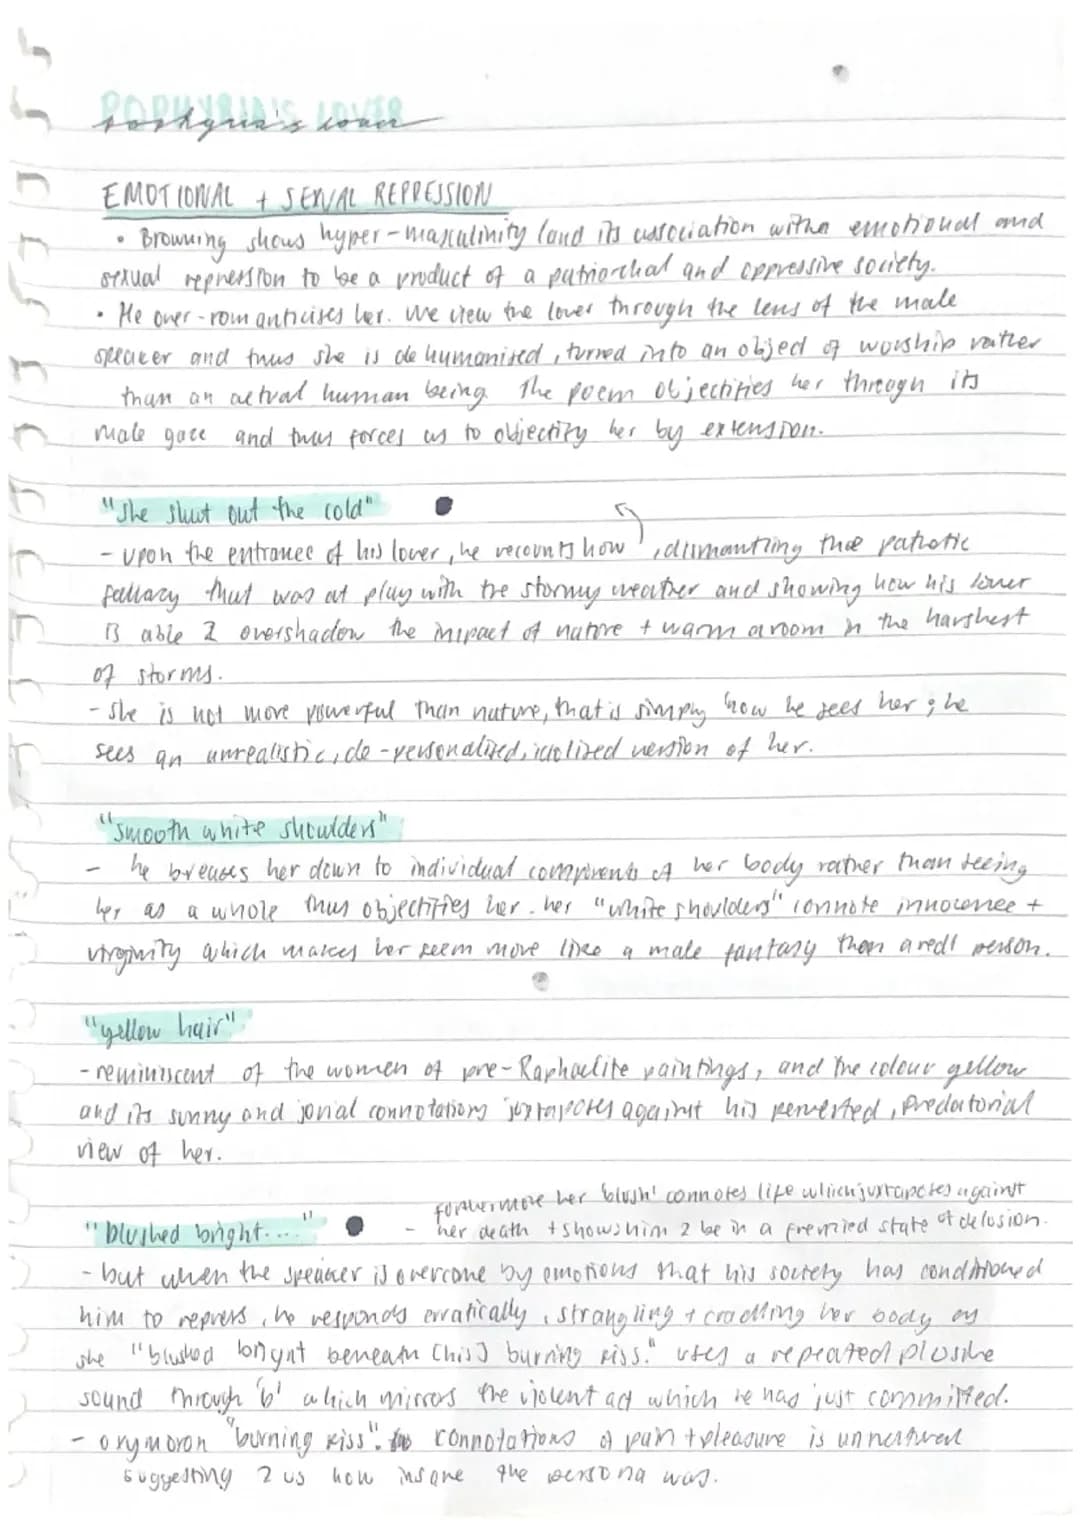 POPHYRIA'S LOVER
Porphyria's lover
EMOTIONAL + SEXUAL REPRESSION
• Browning shows hyper-masculinity (and its association with emotional and
sexual repression to be a product of a patriarchal and oppressive society.
• He over-romanticises her. We view the lover through the lens of the male
speaker and thus she is dehumanised, turned into an object of worship rather
than an actual human being. The poem objectifies her through its
male gaze and thus forces us to objectify her by extension.
"She shut out the cold"
- upon the entrance of his lover, he recounts how ↑, dismantling the pathetic
fallacy that was at play with the stormy weather and showing how his lover
is able 2 overshadow the impact of nature + warm a room in the harshest
of storms.
- she is not more powerful than nature, that is simply how he sees her; he
sees an unrealistic, de-personalised, idolized version of her.
"smooth white shoulders"
- he breakes her down to individual components of her body rather than seeing
her as a whole thus objectifies her. her "white shoulders" connote innocence +
virginity which makes her seem more like a male fantasy than a real person.
"yellow hair"
- reminiscent of the women of pre-Raphaelite paintings, and the colour yellow
and its sunny and jovial connotations juxtaposes against his perverted, predatorial
view of her.
furthermore her 'blush' connotes life which juxtaposes against
"blushed bright...." - her death + shows him 2 be in a frenzied state of delusion.
- but when the speaker is overcome by emotions that his society has conditioned
him to repress, he responds erratically, strangling + cradling her body as
she "blushed bright beneath [his] burning kiss." uses a repeated plosive
sound through 'b' which mirrors the violent act which he has just committed.
- oxymoron "burning kiss". connotations of pain + pleasure is unnatural
suggesting 2 us how insane the persona was.